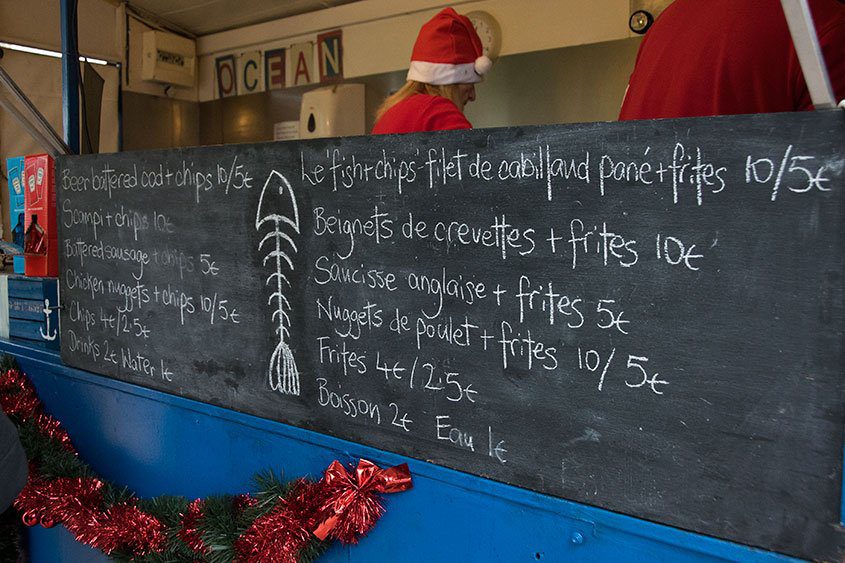 OCEAN
Beer battered cod + chips 10/5€
Scampi + chips 10€
Battered sausage + chips 5€
Chicken nuggets + chips 10/5€
Chips 4€/2.5€
Drinks 2€ Water 1€
Le 'fish+chips' filet de cabillaud pané + frites 10/5€
Beignets de crevettes + frites 10€
Saucisse anglaise + frites 5€
Nuggets de poulet + frites 10/5€
Frites 4€/2.5€
Boisson 2€ Eau 1€